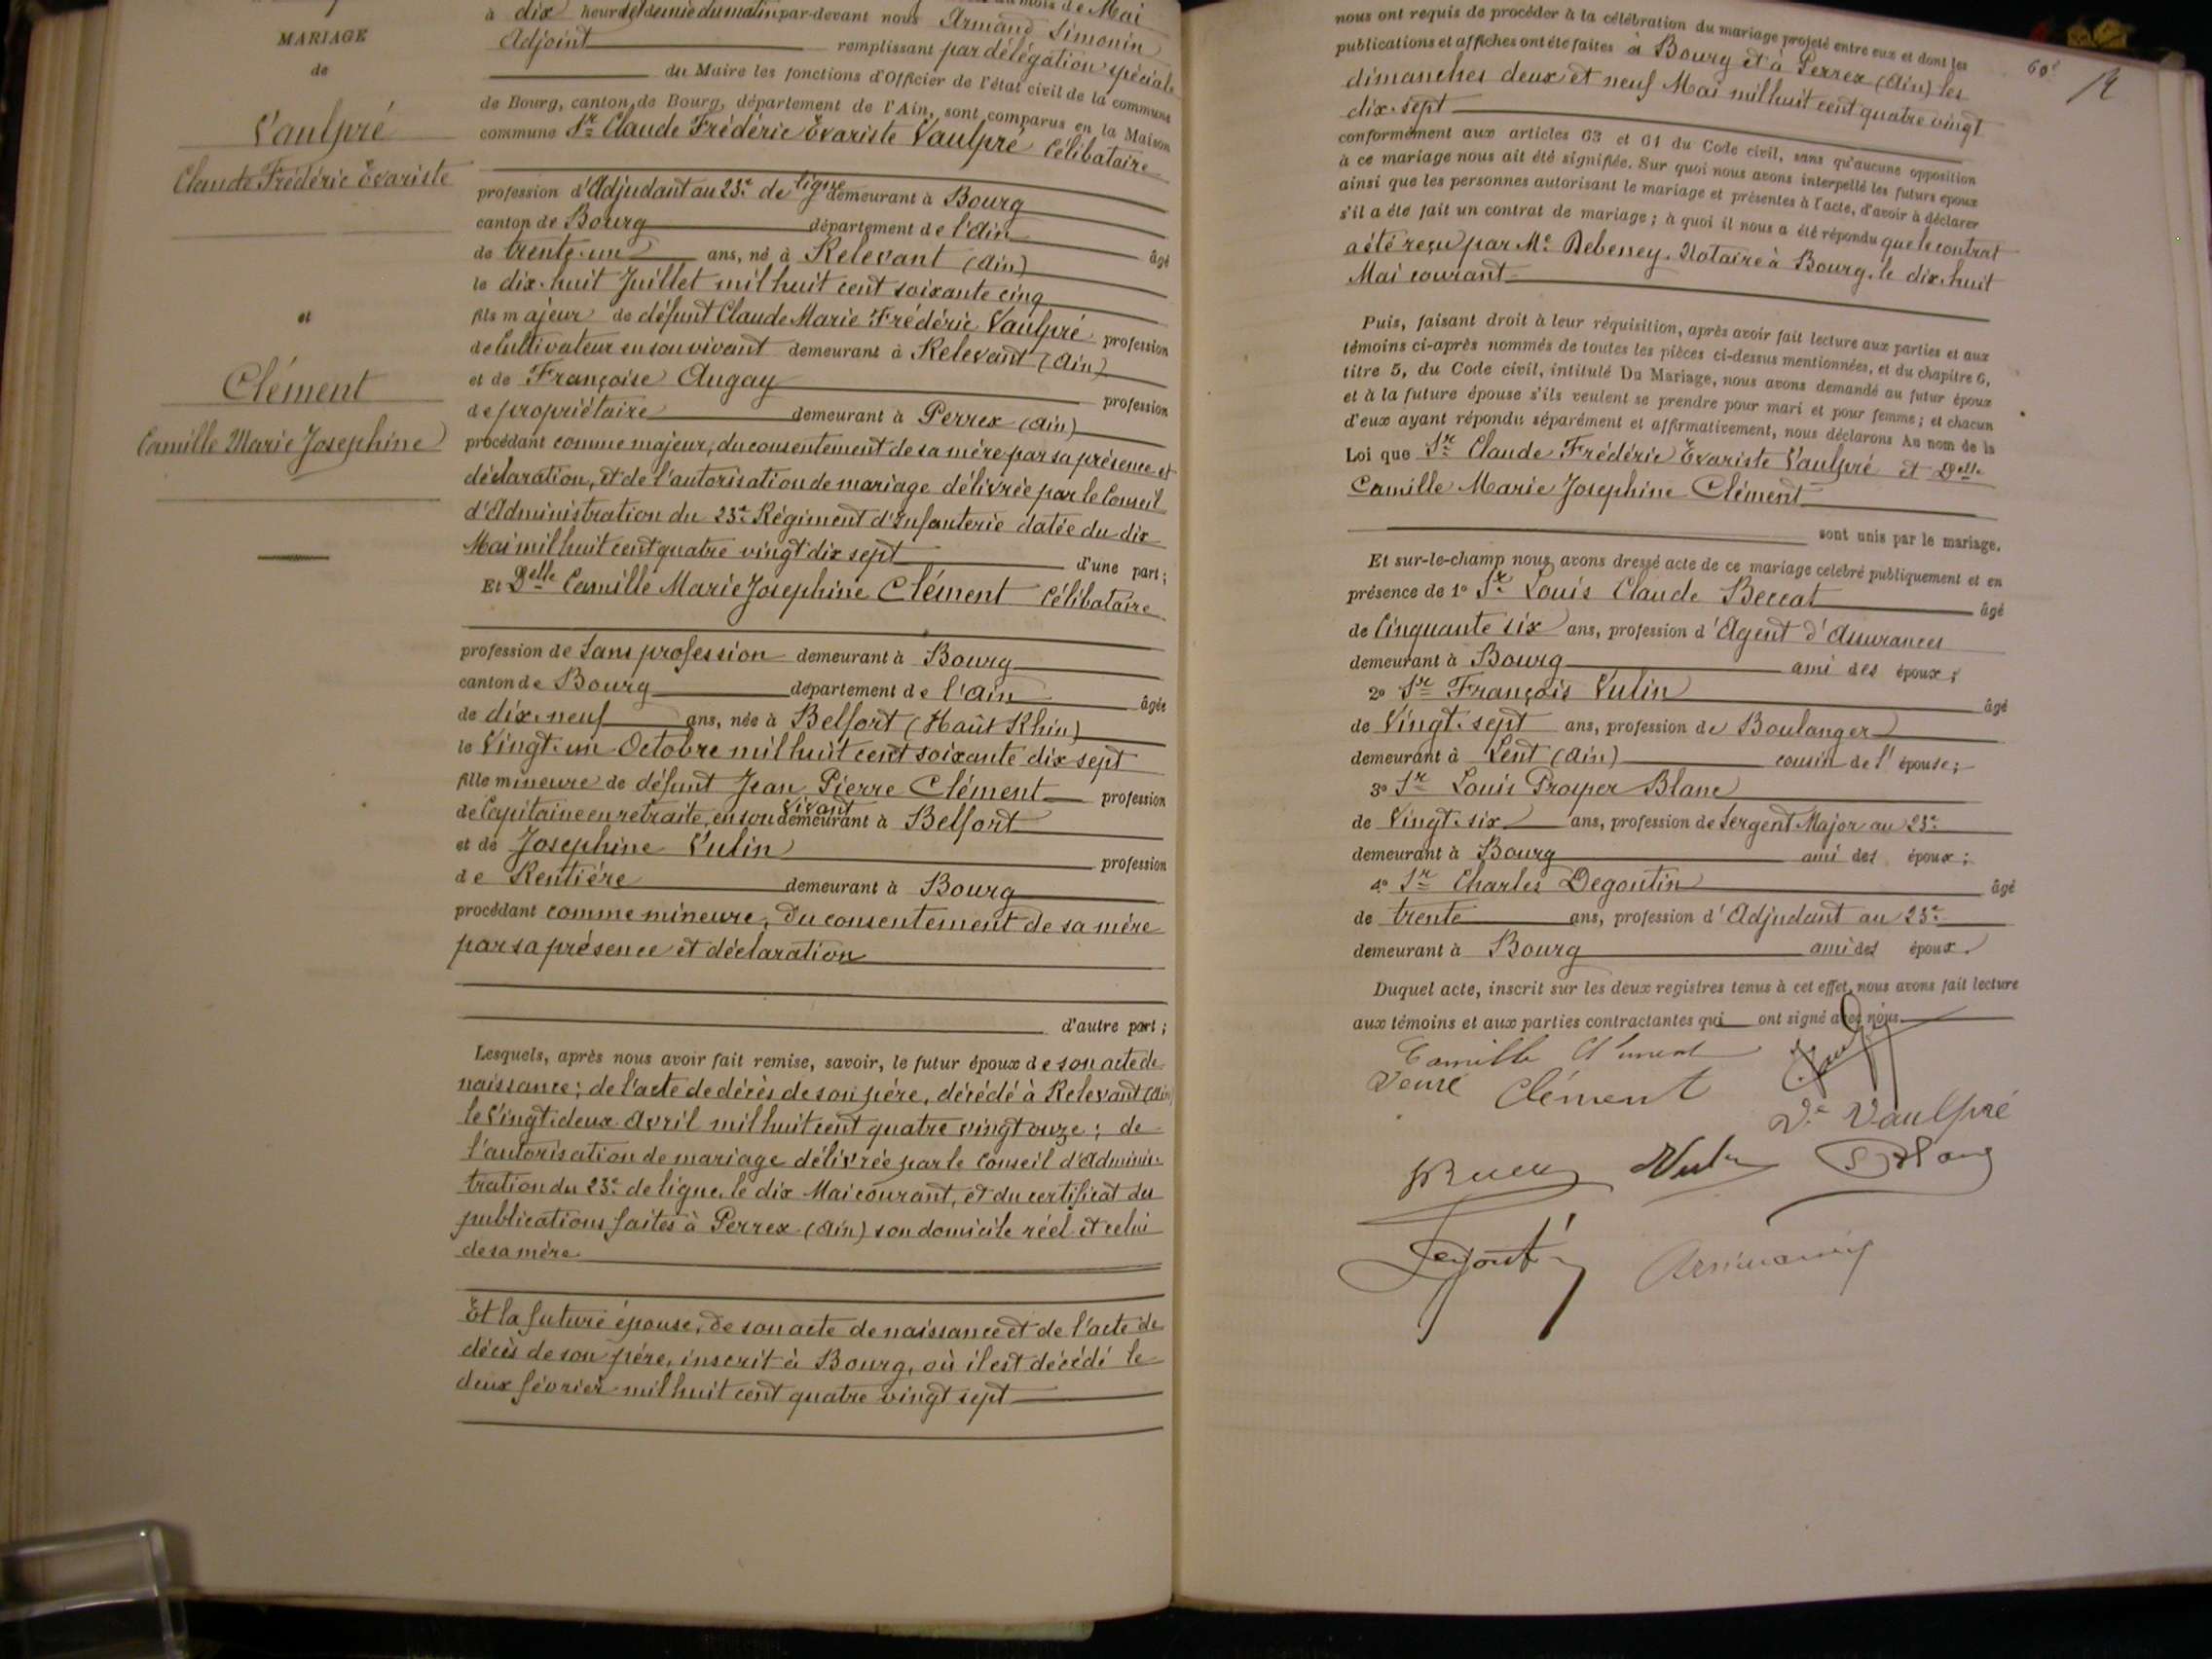 MARIAGE
de
Vaulpré
Claude Frédéric Évariste
et
Clément
Camille Marie Josephine
du mois de Mai
à dix heures et demie du matin par-devant nous Armand Simonin
Adjoint remplissant par délégation spéciale
du Maire les fonctions d'Officier de l'état civil de la commune
de Bourg, canton de Bourg, département de l'Ain, sont comparus en la Maison
commune Sr Claude Frédéric Évariste Vaulpré Célibataire
profession d'Adjudant au 23e de ligne demeurant à Bourg
canton de Bourg département de l'Ain âgé
de trente-un ans, né à Relevant (Ain)
le dix-huit Juillet mil huit cent soixante cinq
fils majeur de défunt Claude Marie Frédéric Vaulpré profession
de Cultivateur en son vivant demeurant à Relevant (Ain)
et de Françoise Augay profession
de propriétaire demeurant à Perrex (Ain)
procédant comme majeur, du consentement de sa mère par sa présence et
déclaration, et de l'autorisation de mariage délivrée par le Conseil
d'Administration du 23e Régiment d'Infanterie datée du dix
Mai mil huit cent quatre vingt dix sept d'une part;
Et Delle Camille Marie Josephine Clément Célibataire
profession de Sans profession demeurant à Bourg
canton de Bourg département de l'Ain âgée
de dix-neuf ans, née à Belfort (Haût Rhin)
le Vingt-un Octobre mil huit cent soixante dix sept
fille mineure de défunt Jean Pierre Clément profession
de Capitaine en retraite, en son vivant demeurant à Belfort
et de Josephine Vulin profession
de Rentière demeurant à Bourg
procédant comme mineure, du consentement de sa mère
par sa présence et déclaration
d'autre part;
Lesquels, après nous avoir fait remise, savoir, le futur époux de son acte de
naissance; de l'acte de décès de son père, décédé à Relevant (Ain)
le Vingt-deux Avril mil huit cent quatre vingt onze; de
l'autorisation de mariage délivrée par le Conseil d'Adminis-
tration du 23e de ligne, le dix Mai courant, et du certificat du
publications faites à Perrex (Ain) son domicile réel et celui
de sa mère
Et la future épouse, de son acte de naissance et de l'acte de
décès de son père, inscrit à Bourg, où il est décédé le
deux février mil huit cent quatre vingt sept
60e
nous ont requis de procéder à la célébration du mariage projeté entre eux et dont les
publications et affiches ont été faites à Bourg et à Perrex (Ain) les
dimanches deux et neuf Mai mil huit cent quatre vingt
dix-sept
conformément aux articles 63 et 64 du Code civil, sans qu'aucune opposition
à ce mariage nous ait été signifiée. Sur quoi nous avons interpellé les futurs époux
ainsi que les personnes autorisant le mariage et présentes à l'acte, d'avoir à déclarer
s'il a été fait un contrat de mariage; à quoi il nous a été répondu que le contrat
a été reçu par Me Debeney, Notaire à Bourg, le dix-huit
Mai courant
Puis, faisant droit à leur réquisition, après avoir fait lecture aux parties et aux
témoins ci-après nommés de toutes les pièces ci-dessus mentionnées, et du chapitre 6,
titre 5, du Code civil, intitulé Du Mariage, nous avons demandé au futur époux
et à la future épouse s'ils veulent se prendre pour mari et pour femme; et chacun
d'eux ayant répondu séparément et affirmativement, nous déclarons Au nom de la
Loi que Sr Claude Frédéric Évariste Vaulpré et Delle
Camille Marie Josephine Clément
sont unis par le mariage.
Et sur-le-champ nous avons dressé acte de ce mariage célébré publiquement et en
présence de 1° Sr Louis Claude Beccat âgé
de Cinquante six ans, profession d'Agent d'Assurances
demeurant à Bourg ami des époux;
2° Sr François Vulin âgé
de Vingt-sept ans, profession de Boulanger
demeurant à Lent (Ain) cousin de l'épouse;
3° Sr Louis Prosper Blanc
de Vingt-six ans, profession de Sergent Major au 23e
demeurant à Bourg ami des époux;
4° Sr Charles Degontin âgé
de trente ans, profession d'Adjudant au 23e
demeurant à Bourg ami des époux.
Duquel acte, inscrit sur les deux registres tenus à cet effet, nous avons fait lecture
aux témoins et aux parties contractantes qui ont signé avec nous
Camille Clément
Veuve Clément
Ve Vaulpré
Vulin